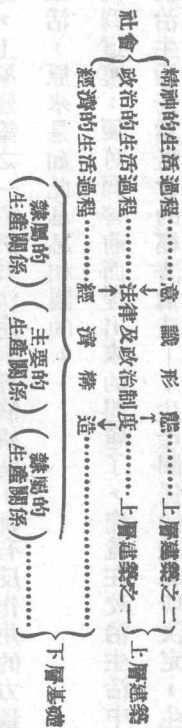 社會
精神的生活過程………意識形態………上層建築之二
政治的生活過程………法律及政治制度………上層建築之一
上層建築
經濟的生活過程………經濟構造………
(隸屬的生產關係)(主要的生產關係)(隸屬的生產關係)………
下層基礎